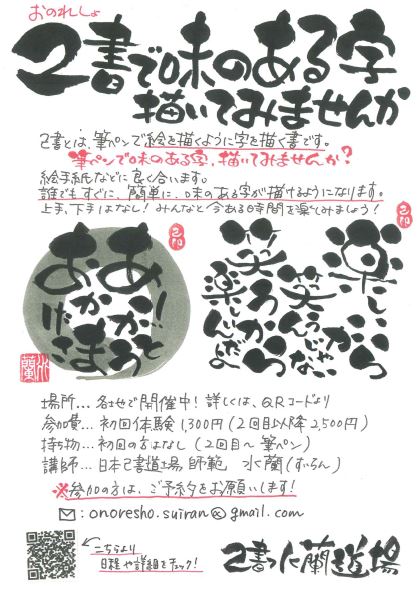 おのれしょ
己書で味のある字
描いてみませんか
己書とは、筆ペンで絵を描くように字を描く書です。
筆ペンで味のある字、描いてみませんか?
絵手紙などに良く合います。
誰でもすぐに、簡単に、味のある字が描けるようになります。
上手、下手はなし!みんなと今ある時間を楽しみましょう!
ありがとう
おかげさま
楽しいから
笑うんじゃない
笑うから
楽しいんだよ
場所…各地で開催中!詳しくは、QRコードより
参加費…初回体験1,300円(2回目以降2,500円)
持ち物…初回のみなし(2回目〜筆ペン)
講師…日本己書道場 師範 水蘭(すいらん)
※参加の方は、ご予約をお願いします!
:onoresho.suiran@gmail.com
こちらより
日程や詳細をチェック!
蘭道場